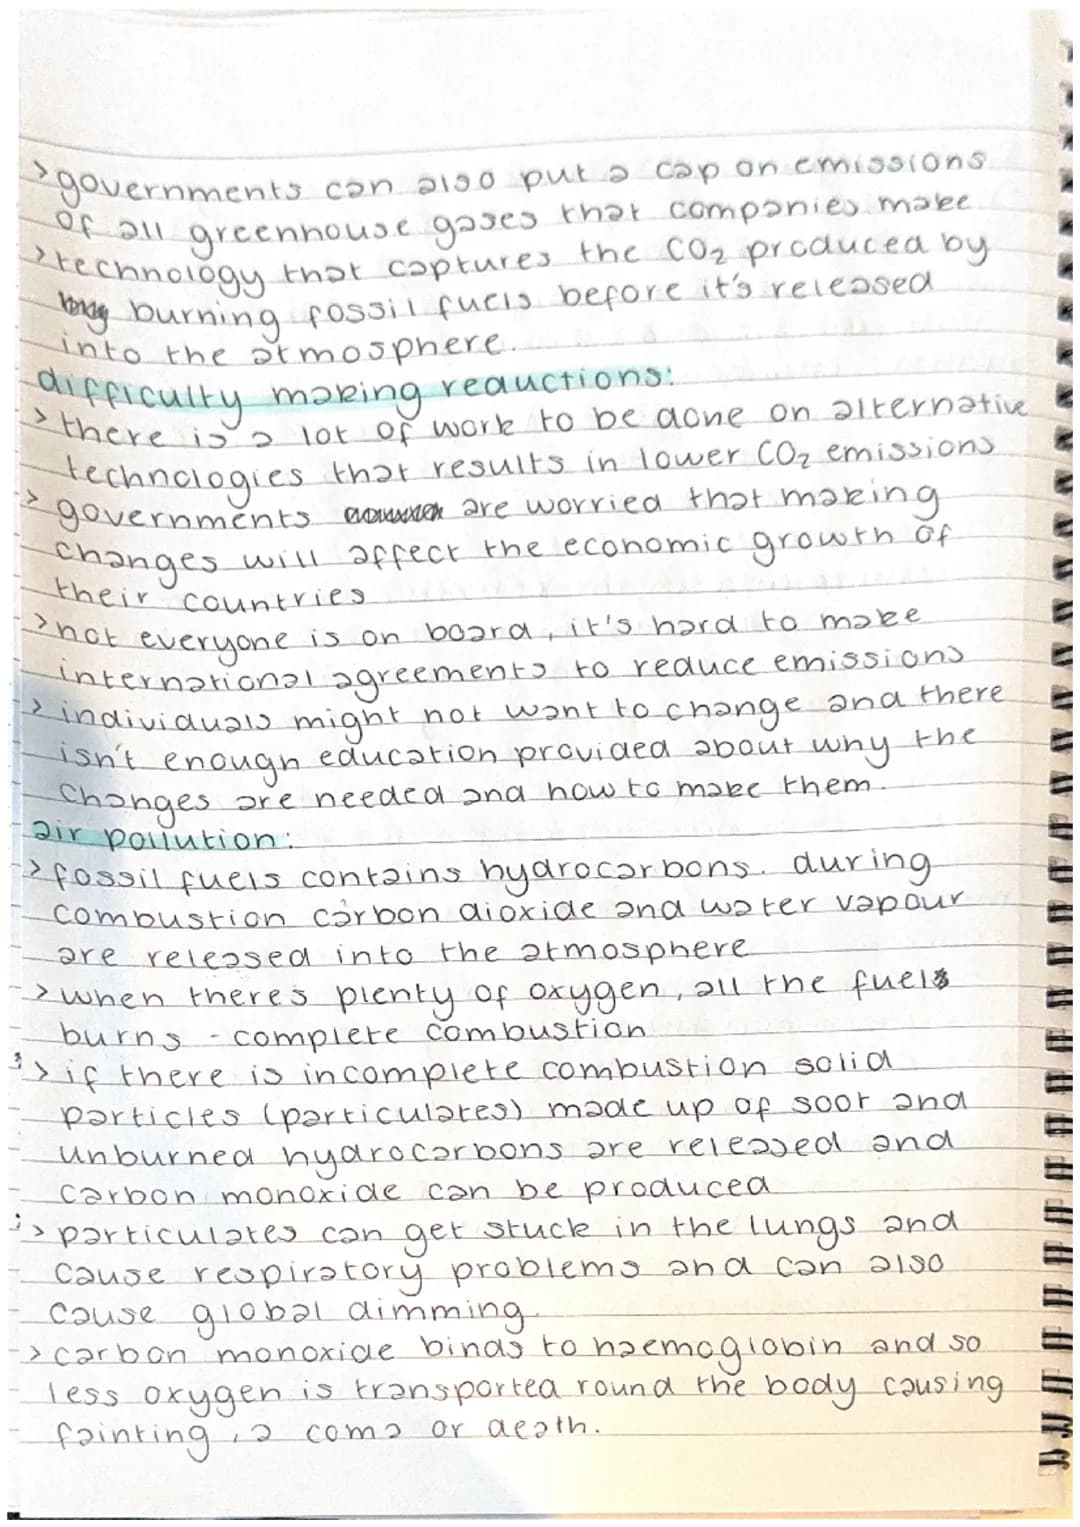 >governments can also put a cap on emissions
of all greenhouse gases that companies make
>technology that captures the CO₂ produced by
burning fossil fuels before it's released
into the atmosphere.
difficulty making reductions:
>there is a lot of work to be done on alternative
technologies that results in lower CO₂ emissions
>governments are worried that making
changes will affect the economic growth of
their countries
>not everyone is on board, it's hard to make
international agreements to reduce emissions
>individuals might not want to change and there
isn't enough education provided about why the
changes are needed and how to make them.
air pollution:
>fossil fuels contains hydrocarbons. during
combustion carbon dioxide and water vapour
are released into the atmosphere
>when theres plenty of oxygen, all the fuel
burns - complete combustion
>if there is incomplete combustion solid
particles (particulates) made up of soot and
unburned hydrocarbons are released and
carbon monoxide can be produced
>particulates can get stuck in the lungs and
cause respiratory problems and can also
cause global dimming.
>carbon monoxide binds to haemoglobin and so
less oxygen is transported round the body causing
fainting, a coma or death.